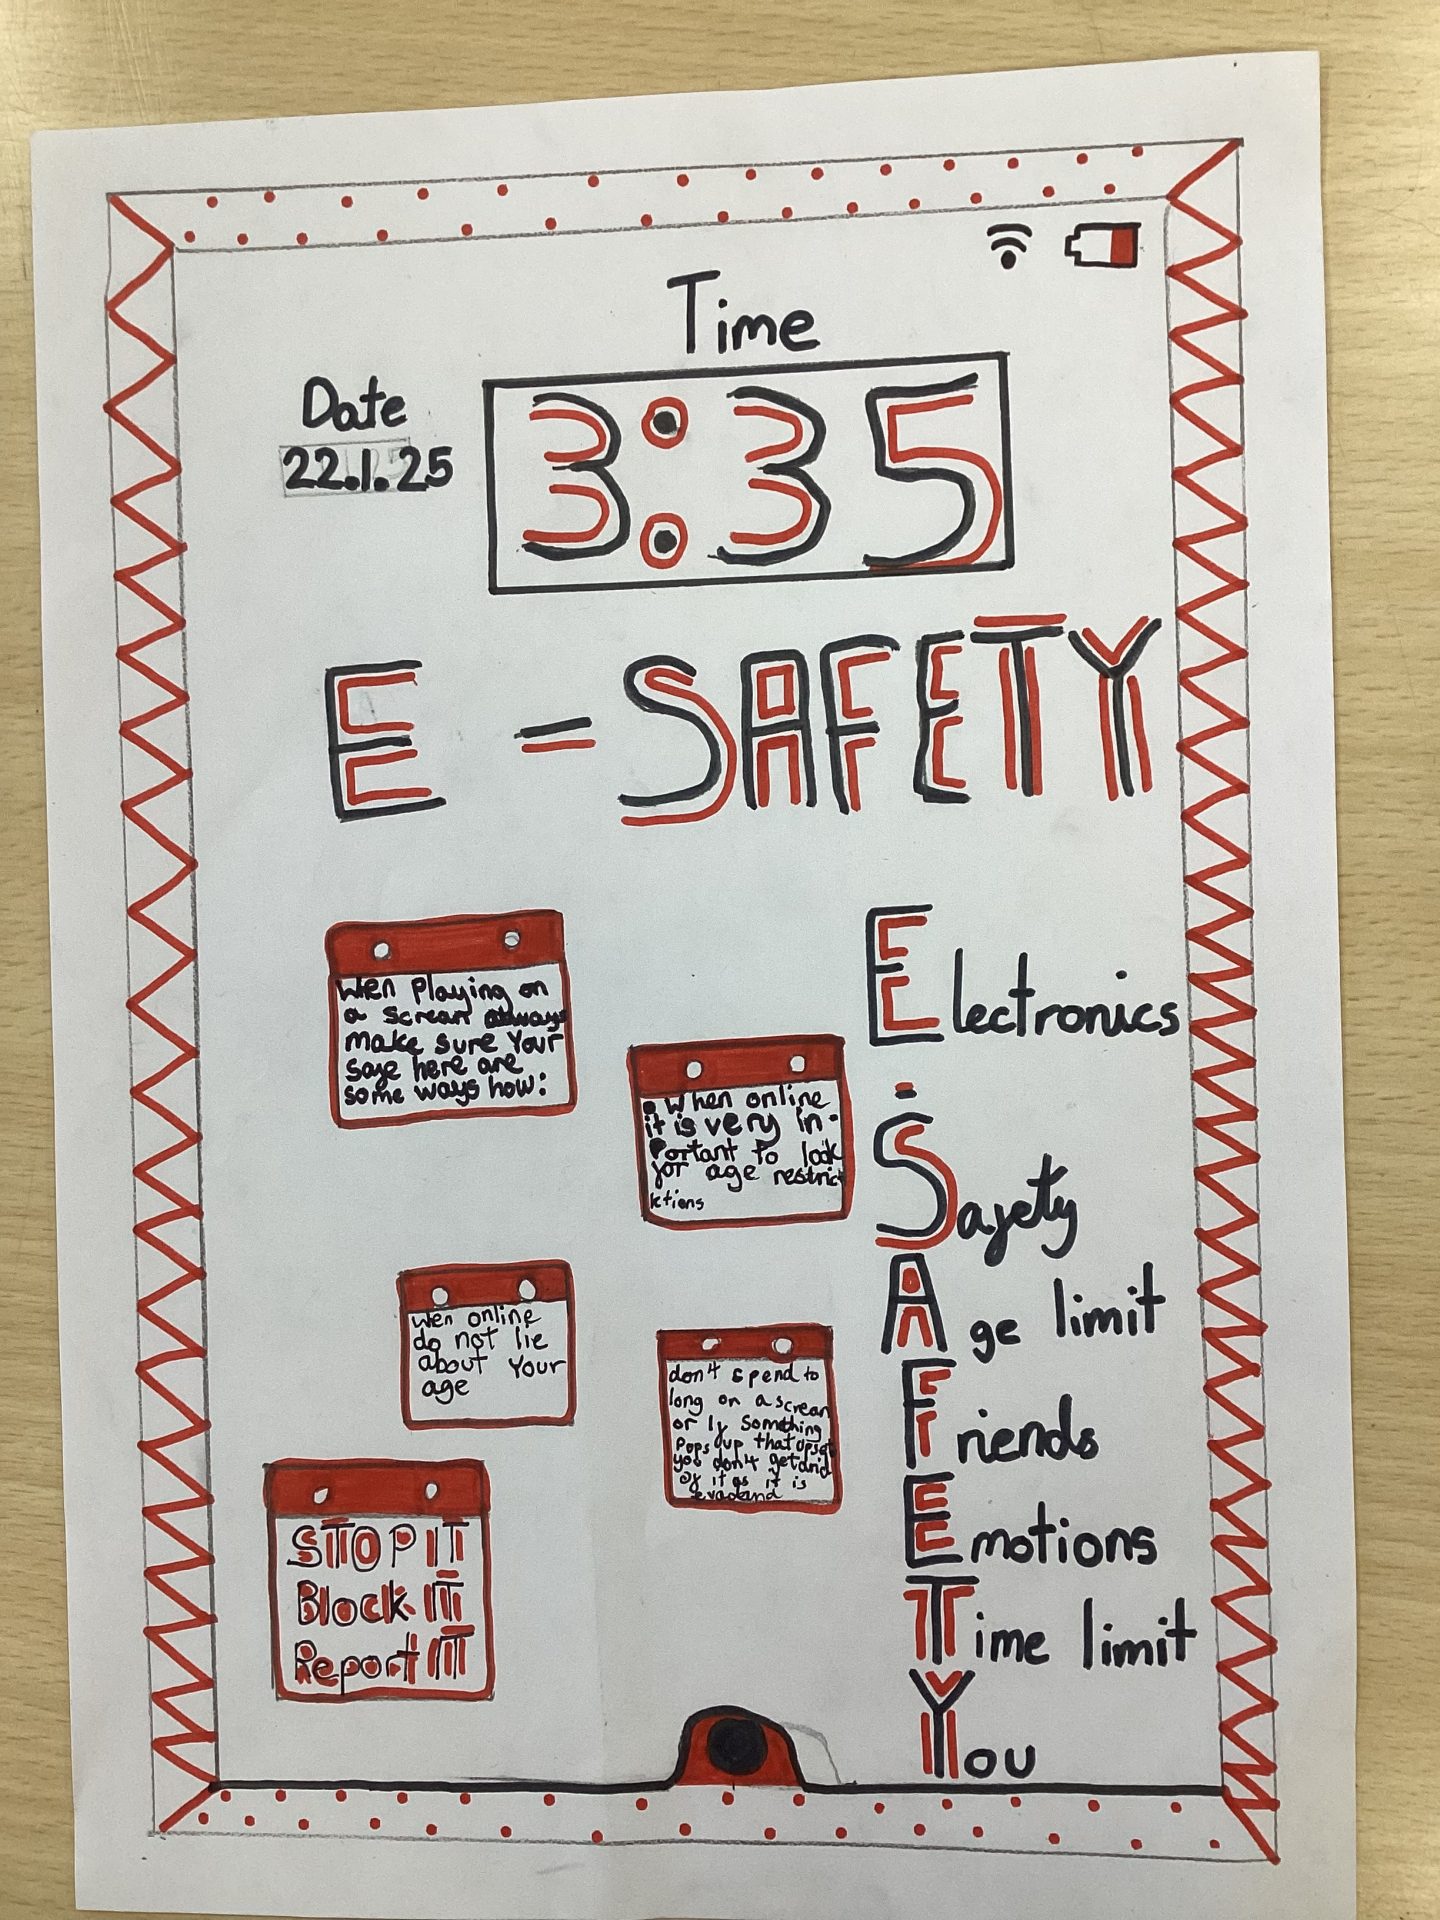 Time
Date
22.1.25
3:35
E - SAFETY
Wen Playing on
a screan always
make sure Your
safe here are
some ways how:
• When online
it is very im-
Portant to look
for age restric
ktions
Wen online
do not lie
about Your
age
don't spend to
long on a screan
or If Something
Pops up that upset
you don't get
of it as it is
STOP IT
Block IT
Report IT
Electronics
-
Safety
Age limit
Friends
Emotions
Time limit
You